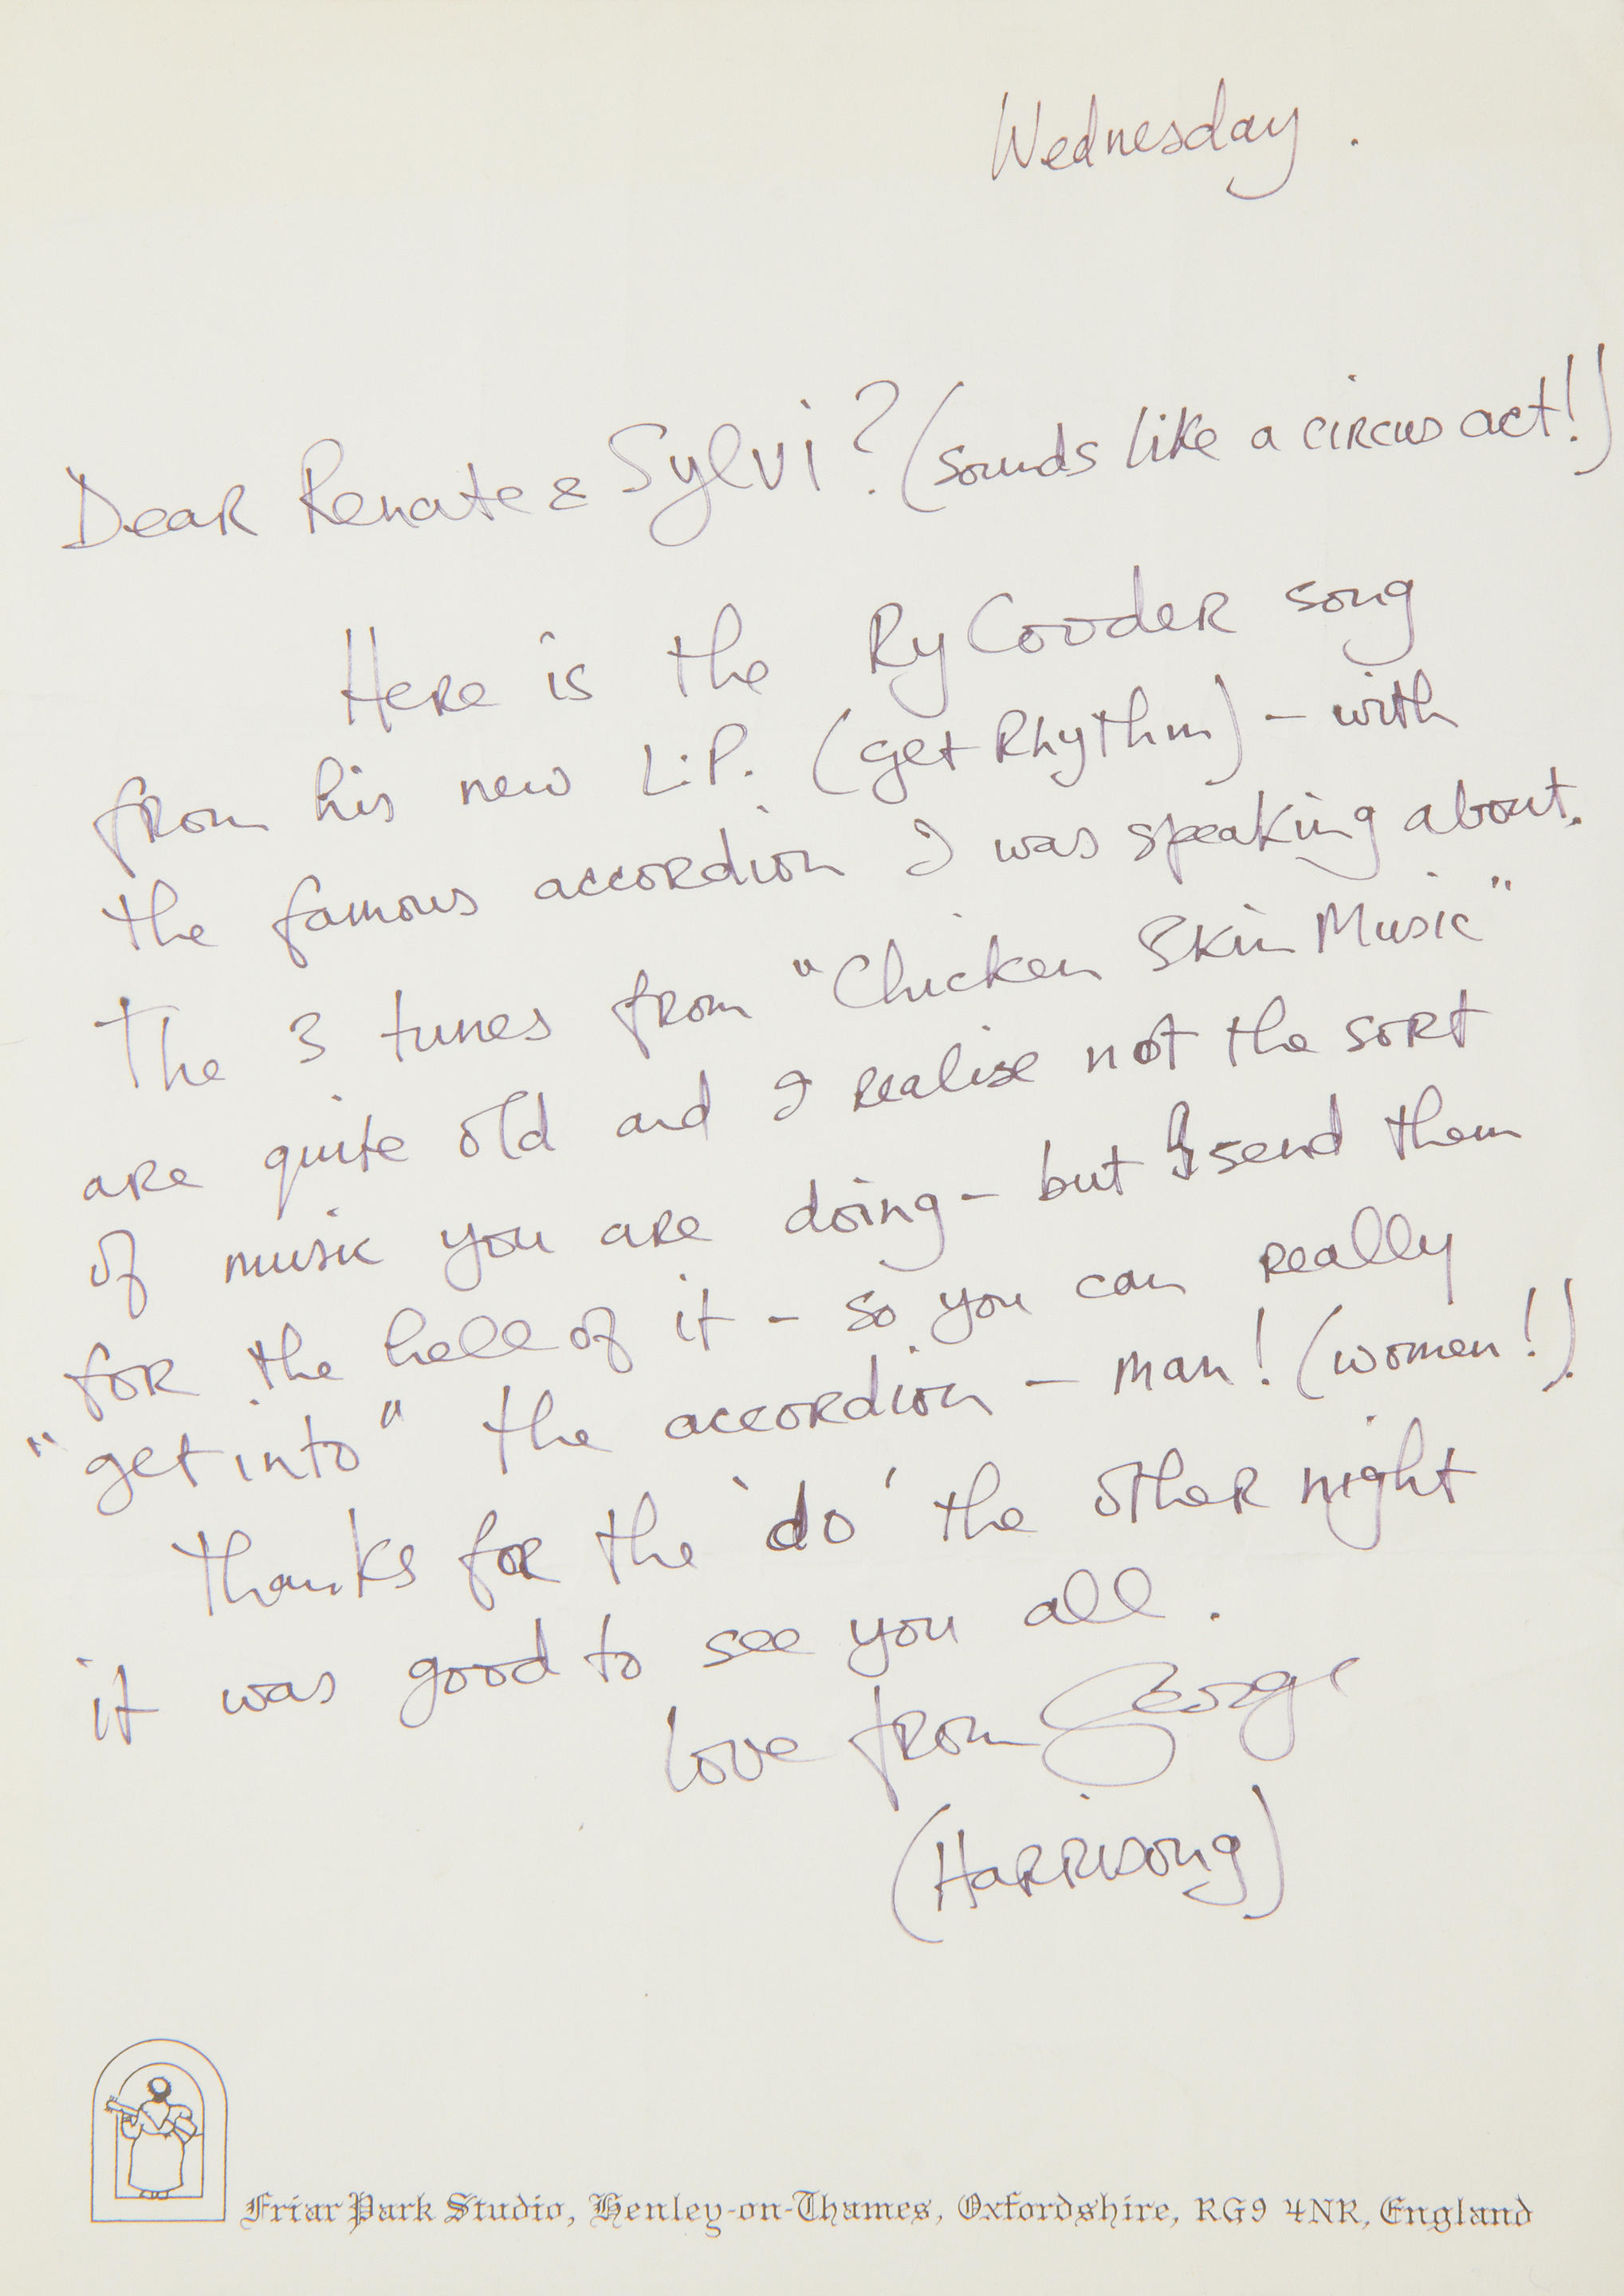 Wednesday.
Dear Renate & Sylvi? (sounds like a circus act!)
Here is the Ry Cooder song
from his new L.P. (get Rhythm) - with
the famous accordion I was speaking about.
The 3 tunes from "Chicken Skin Music"
are quite old and I realise not the sort
of music you are doing - but I send them
for the hell of it - so you can really
"get into" the accordion - man! (women!).
Thanks for the 'do' the other night
it was good to see you all.
love from George
(Harrisong)
Friar Park Studio, Henley-on-Thames, Oxfordshire, RG9 4NR, England